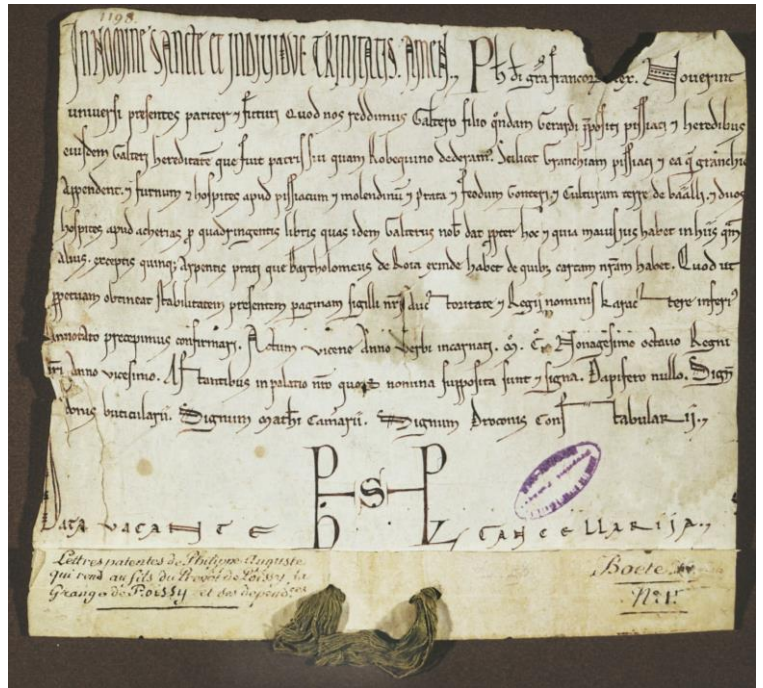 1198.
IN NOMINE SANCTE ET INDIVIDUE TRINITATIS. AMEN. Ph di gra francorum rex. Noverint
universi presentes pariter 7 futuri Quod nos reddimus Galtero filio qndam Gerardi ppositi pissiaci 7 heredibus
eiusdem Galteri hereditate que fuit patris sui quam Robequino dederam. Scilicet Granchiam pissiaci 7 ea q granchie
Appendent. 7 furnum 7 hospites apud pissiacum 7 molendinu 7 prata 7 feodum Gonteri. 7 Culturam terre de baalli. 7 duos
hospites apud acherias p quadringentis libris quas idem Galterus nob dat ppter hoc 7 quia maius ius habet in hiis qm
alius. exceptis quinq Arpentis prati que Bartholomeus de Roia exinde habet de quib cartam nram habet. Quod ut
ppetuam obtineat stabilitatem presentem paginam sigilli nri auctoritate 7 Regii nominis karactere inferi
Annotato precepimus confirmari. Actum Anno verbi incarnati. M. C. Nonagesimo octavo Regni
nri Anno vicesimo. Astantibus in palatio nro quor nomina supposita sunt 7 signa. Dapifero nullo. Sign
buticularii. Signum Mathi Camarii. Signum Droconis Constabularii.
P S P
h L
DATA VACANTE CANCELLARIA.
Lettres patentes de Philippe Auguste
qui rend au fils du Prevot de Poissy, la
Grange de Poissy et ses dependces
Boete
N.o 1.